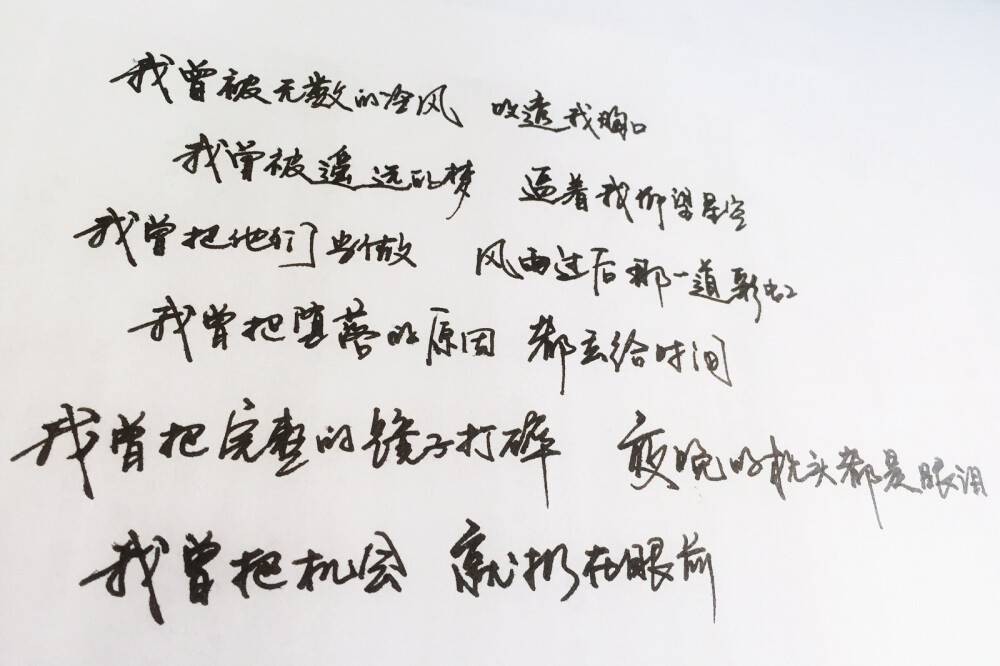 我曾被无数的冷风 吹透我胸口
我曾被遥远的梦 逼着我仰望星空
我曾把他们当做 风雨过后那一道彩虹
我曾把堕落的原因 都丢给时间
我曾把完整的镜子打碎 夜晚的枕头都是眼泪
我曾把机会 就扔在眼前